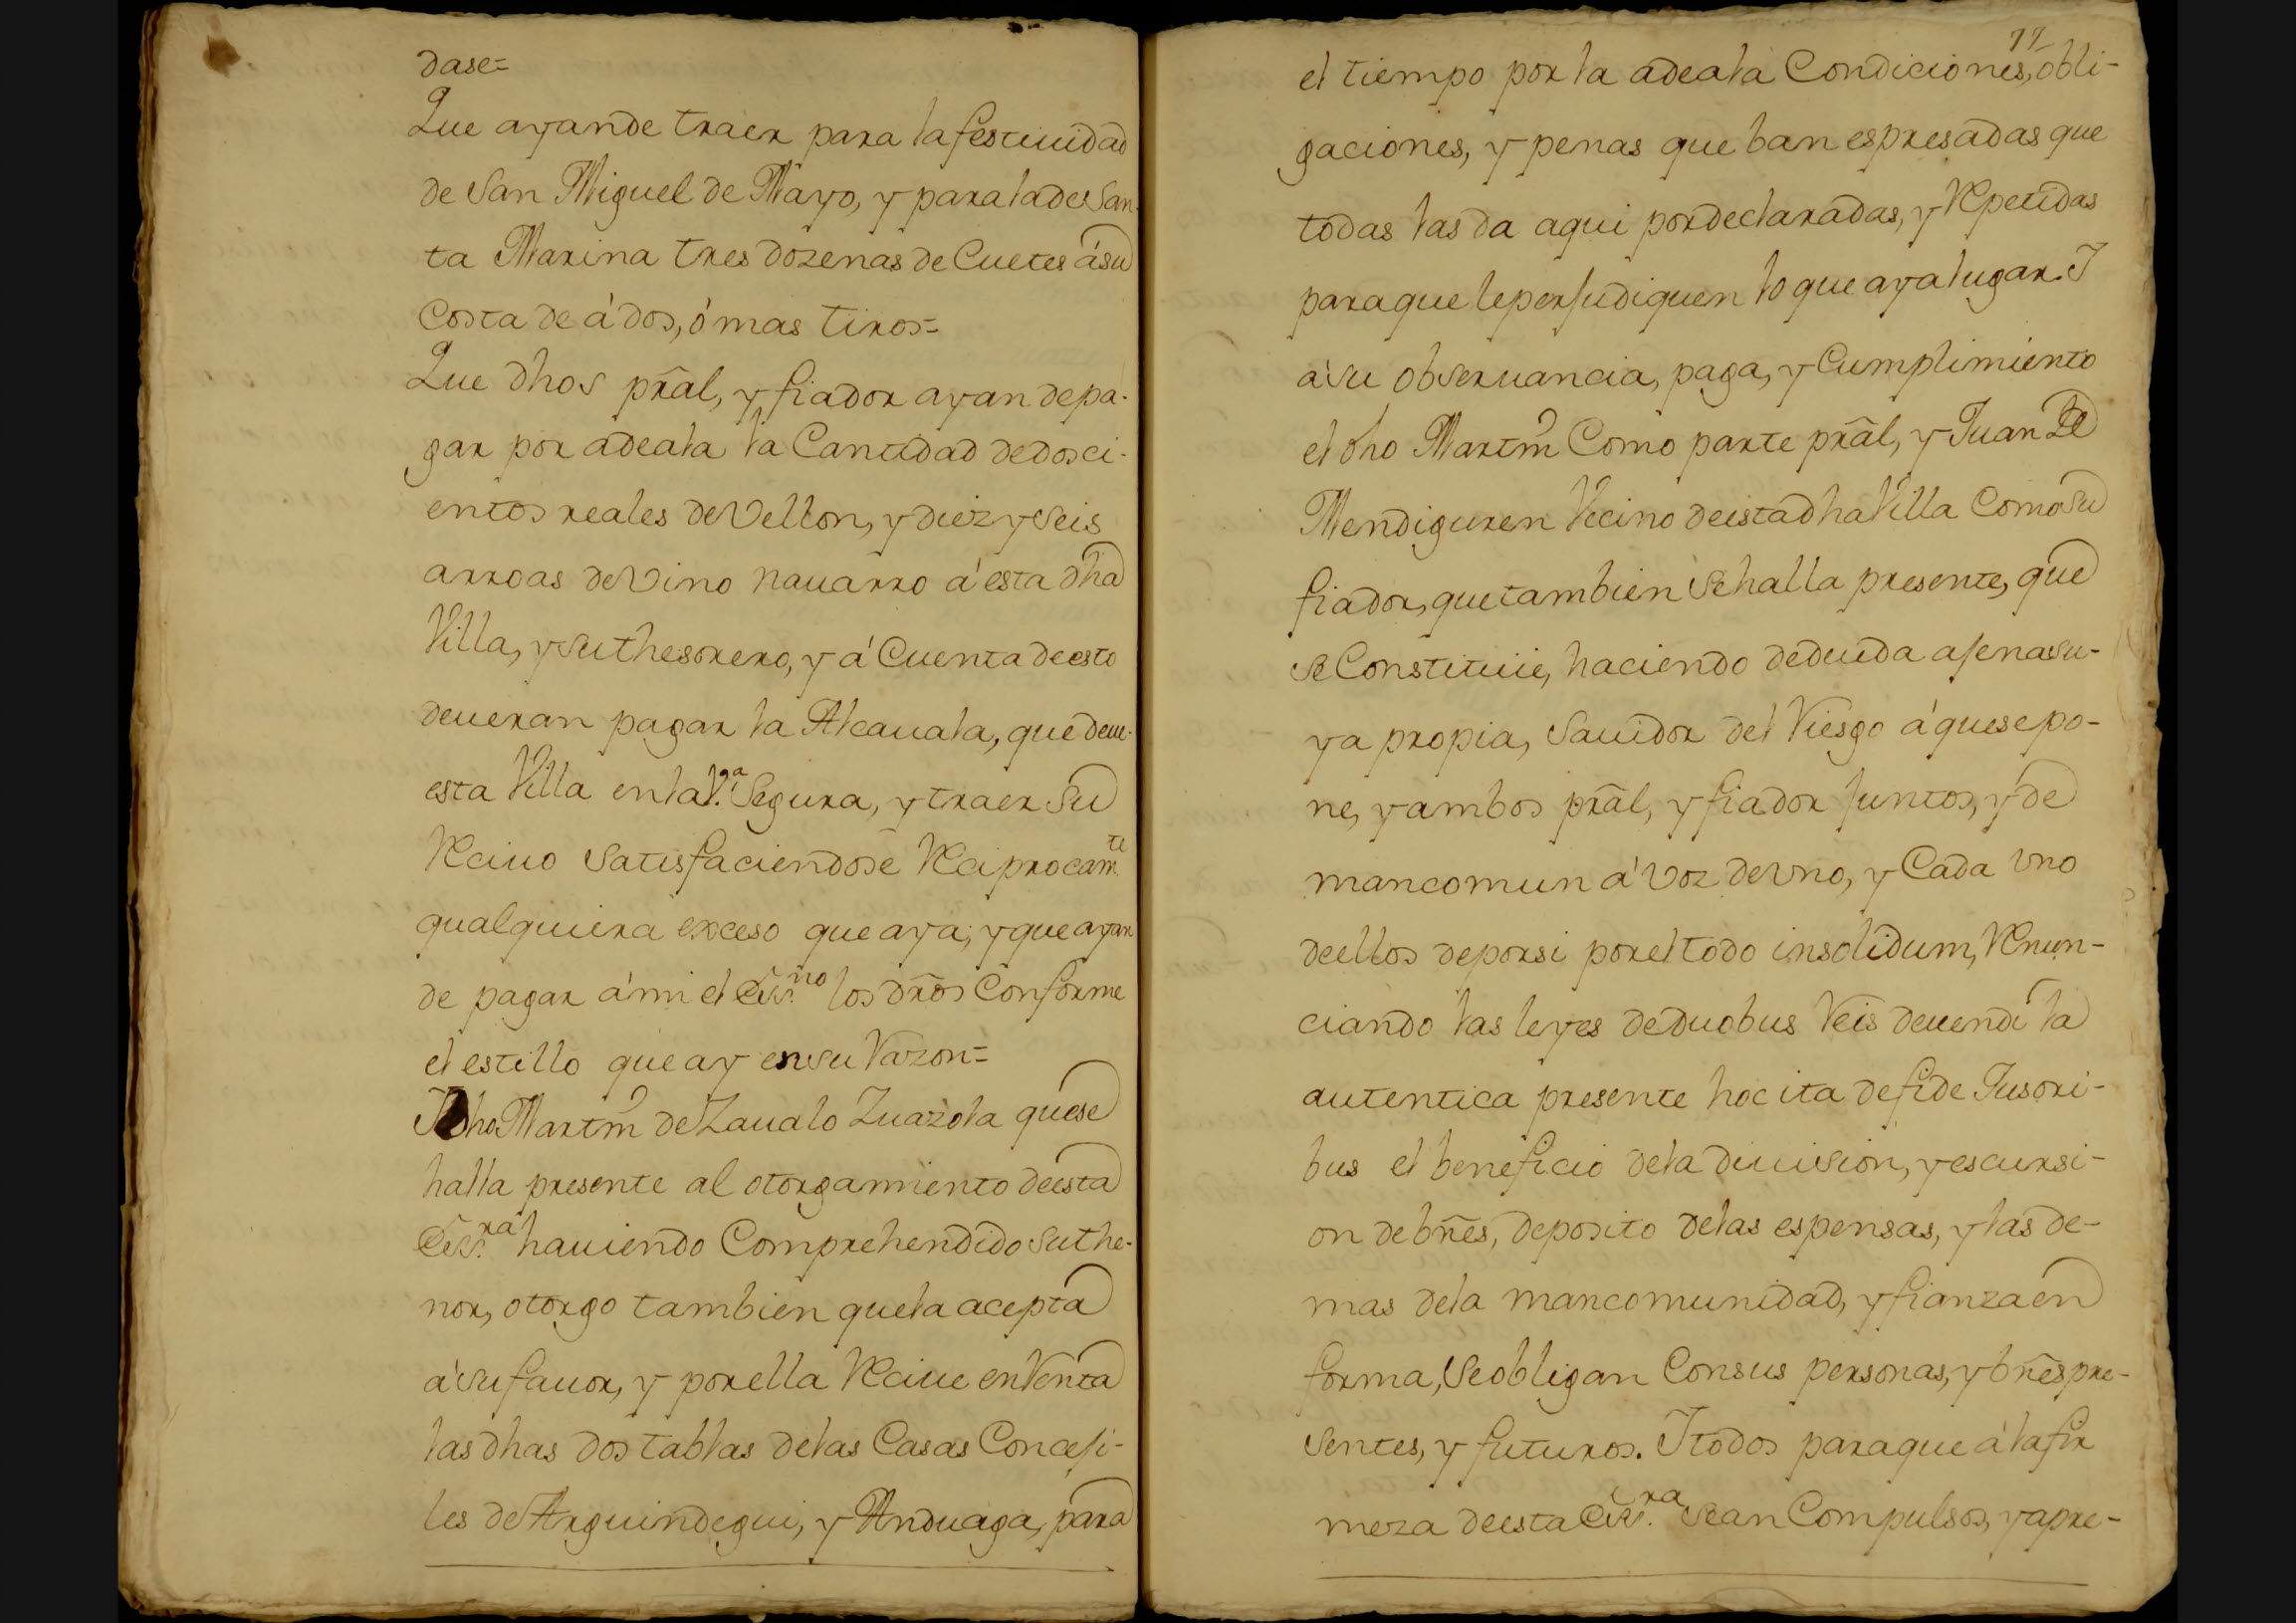 dase=
Que ayande traer para la festiuidad
de San Miguel de Mayo, y para la de San
ta Marina tres dozenas de Cuetes á su
Costa de á dos, ó mas tiros=
Que dhos prãl, y fiador ayan de pa-
gar por adeala la Cantidad de dosci-
entos reales de Vellon, y diez y seis
arroas de Vino nauarro á esta dha
Villa, y su thesorero, y á Cuenta de esto
deueran pagar la Alcauala, que deue
esta Villa en la V.ª Segura, y traer su
Reciuo satisfaciendose Reciprocam.te
qualquiera exceso que aya, y que ayan
de pagar á mi el Ess.no los drõs Conforme
el estillo que ay en su Razon=
Y dho Martñ de Zaualo Zuazola que se
halla presente al otorgamiento de esta
Ess.ra hauiendo Comprehendido su the-
nor, otorgo tambien que la acepta
á su fauor, y por ella Reciue en Renta
las dhas dos tablas de las Casas Conceji-
les de Arguindegui, y Anduaga, para
72
el tiempo por la adeala Condiciones, obli-
gaciones, y penas que ban espresadas que
todas las da aqui por declaradas, y Repetidas
para que le perjudiquen lo que aya lugar. Y
á su obseruancia, paga, y Cumplimiento
el dho Martñ Como parte prãl, y Juan de
Mendiguren Vecino de esta dha Villa Como su
fiador, que tambien se halla presente, que
se Constituie, haciendo de deuda ajena su-
ya propia, sauidor del Riesgo á que se po-
ne, y ambos prãl, y fiador juntos, y de
mancomun á voz de vno, y Cada vno
de ellos de por si por el todo insolidum, Renun-
ciando las leyes de duobus Reis deuendi la
autentica presente hoc ita de fide Jusori-
bus el beneficio de la diuision, y escursi-
on de bñes, deposito de las espensas, y las de-
mas de la mancomunidad, y fianza en
forma, se obligan Con sus personas, y bñes pre-
sentes, y futuros. Y todos para que á la fir
meza de esta Ess.ra sean Compulsos, y apre-